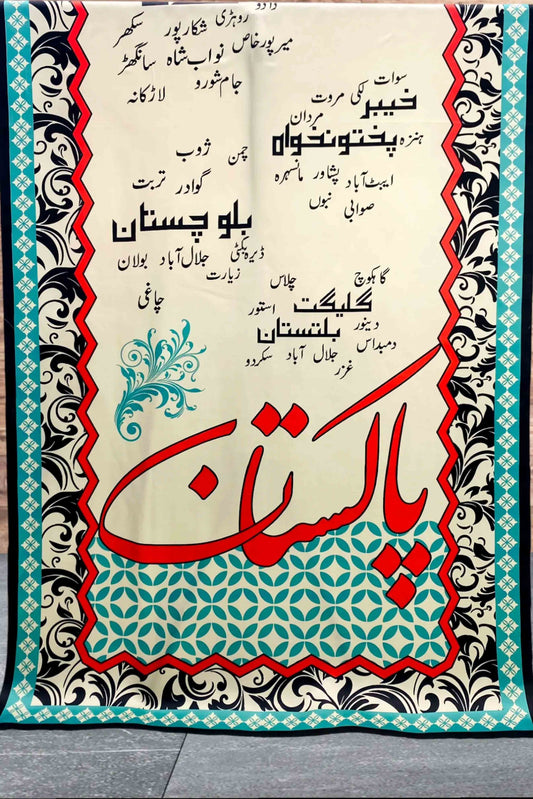 دادو
روہڑی شکارپور سکھر
میرپورخاص نواب شاہ سانگھڑ
جام شورو لاڑکانہ
سوات
لکی مروت
خیبر
مردان
پختونخواہ
ہنزہ
مانسہرہ پشاور ایبٹ آباد
صوابی
چمن ژوب
گوادر تربت
بلوچستان
ڈیرہ بگٹی
جلال آباد بولان
زیارت
چاغی
گاہکوچ چلاس
گلگت
استور
دینور
بلتستان
دمبداس
جلال آباد سکردو
غزر
پاکستان